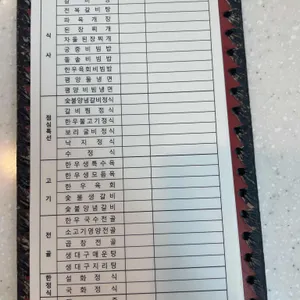 전 복 갈 비 탕
파 육 개 장
된 장 찌 개
차돌된장찌개
궁중비빔밥
돌솥비빔밥
한우육회비빔밥
평양물냉면
평양비빔냉면
식 사
숯불양념갈비정식
갈비찜정식
한우불고기정식
보리굴비정식
낙 지 정 식
수 정 식
점심특선
한우생특수육
한우생모음육
한 우 육 회
숯불생갈비
숯불양념갈비
고 기
한우국수전골
소고기영양전골
곱 창 전 골
생대구매운탕
생대구지리탕
전 골
설 화 정 식
국 화 정 식
한정식